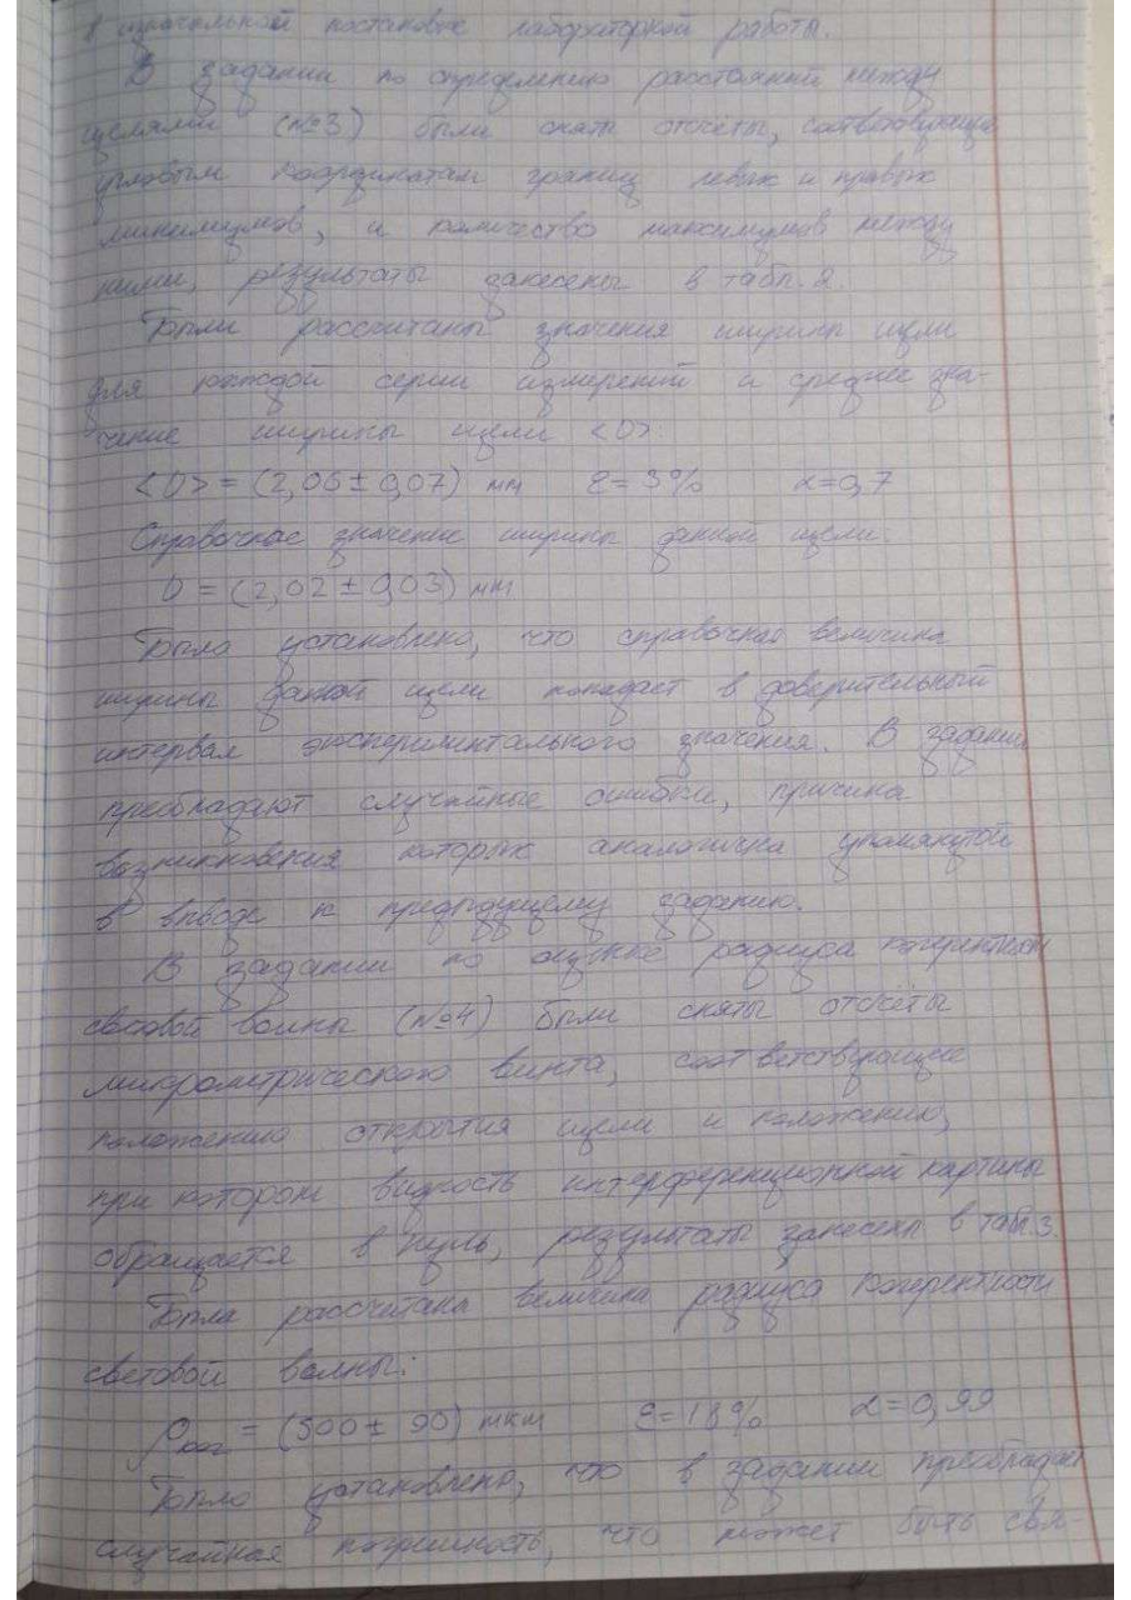 в изначальной постановке лабораторной работы.
В задании по определению расстояний между
щелями (№3) были сняты отсчёты, соответствующие
угловым координатам границ левых и правых
минимумов, и количество максимумов между
ними, результаты занесены в табл. 2.
Были рассчитаны значения ширины щели
для каждой серии измерений и среднее зна-
чение ширины щели <D>:
<D> = (2,06 ± 0,07) мм ε = 3% α = 0,7
Справочное значение ширины данной щели:
D = (2,02 ± 0,03) мм
Было установлено, что справочная величина
ширины данной щели попадает в доверительный
интервал экспериментального значения. В задании
преобладают случайные ошибки, причина
возникновения которых аналогична упомянутой
в выводе к предыдущему заданию.
В задании по оценке радиуса когерентности
световой волны (№4) были сняты отсчёты
микрометрического винта, соответствующие
положению открытия щели и положению,
при котором видность интерференционной картины
обращается в нуль, результаты занесены в табл. 3.
Была рассчитана величина радиуса когерентности
световой волны:
ρког = (500 ± 90) мкм ε = 18% α = 0,99
Было установлено, что в задании преобладает
случайная погрешность, что может быть свя-